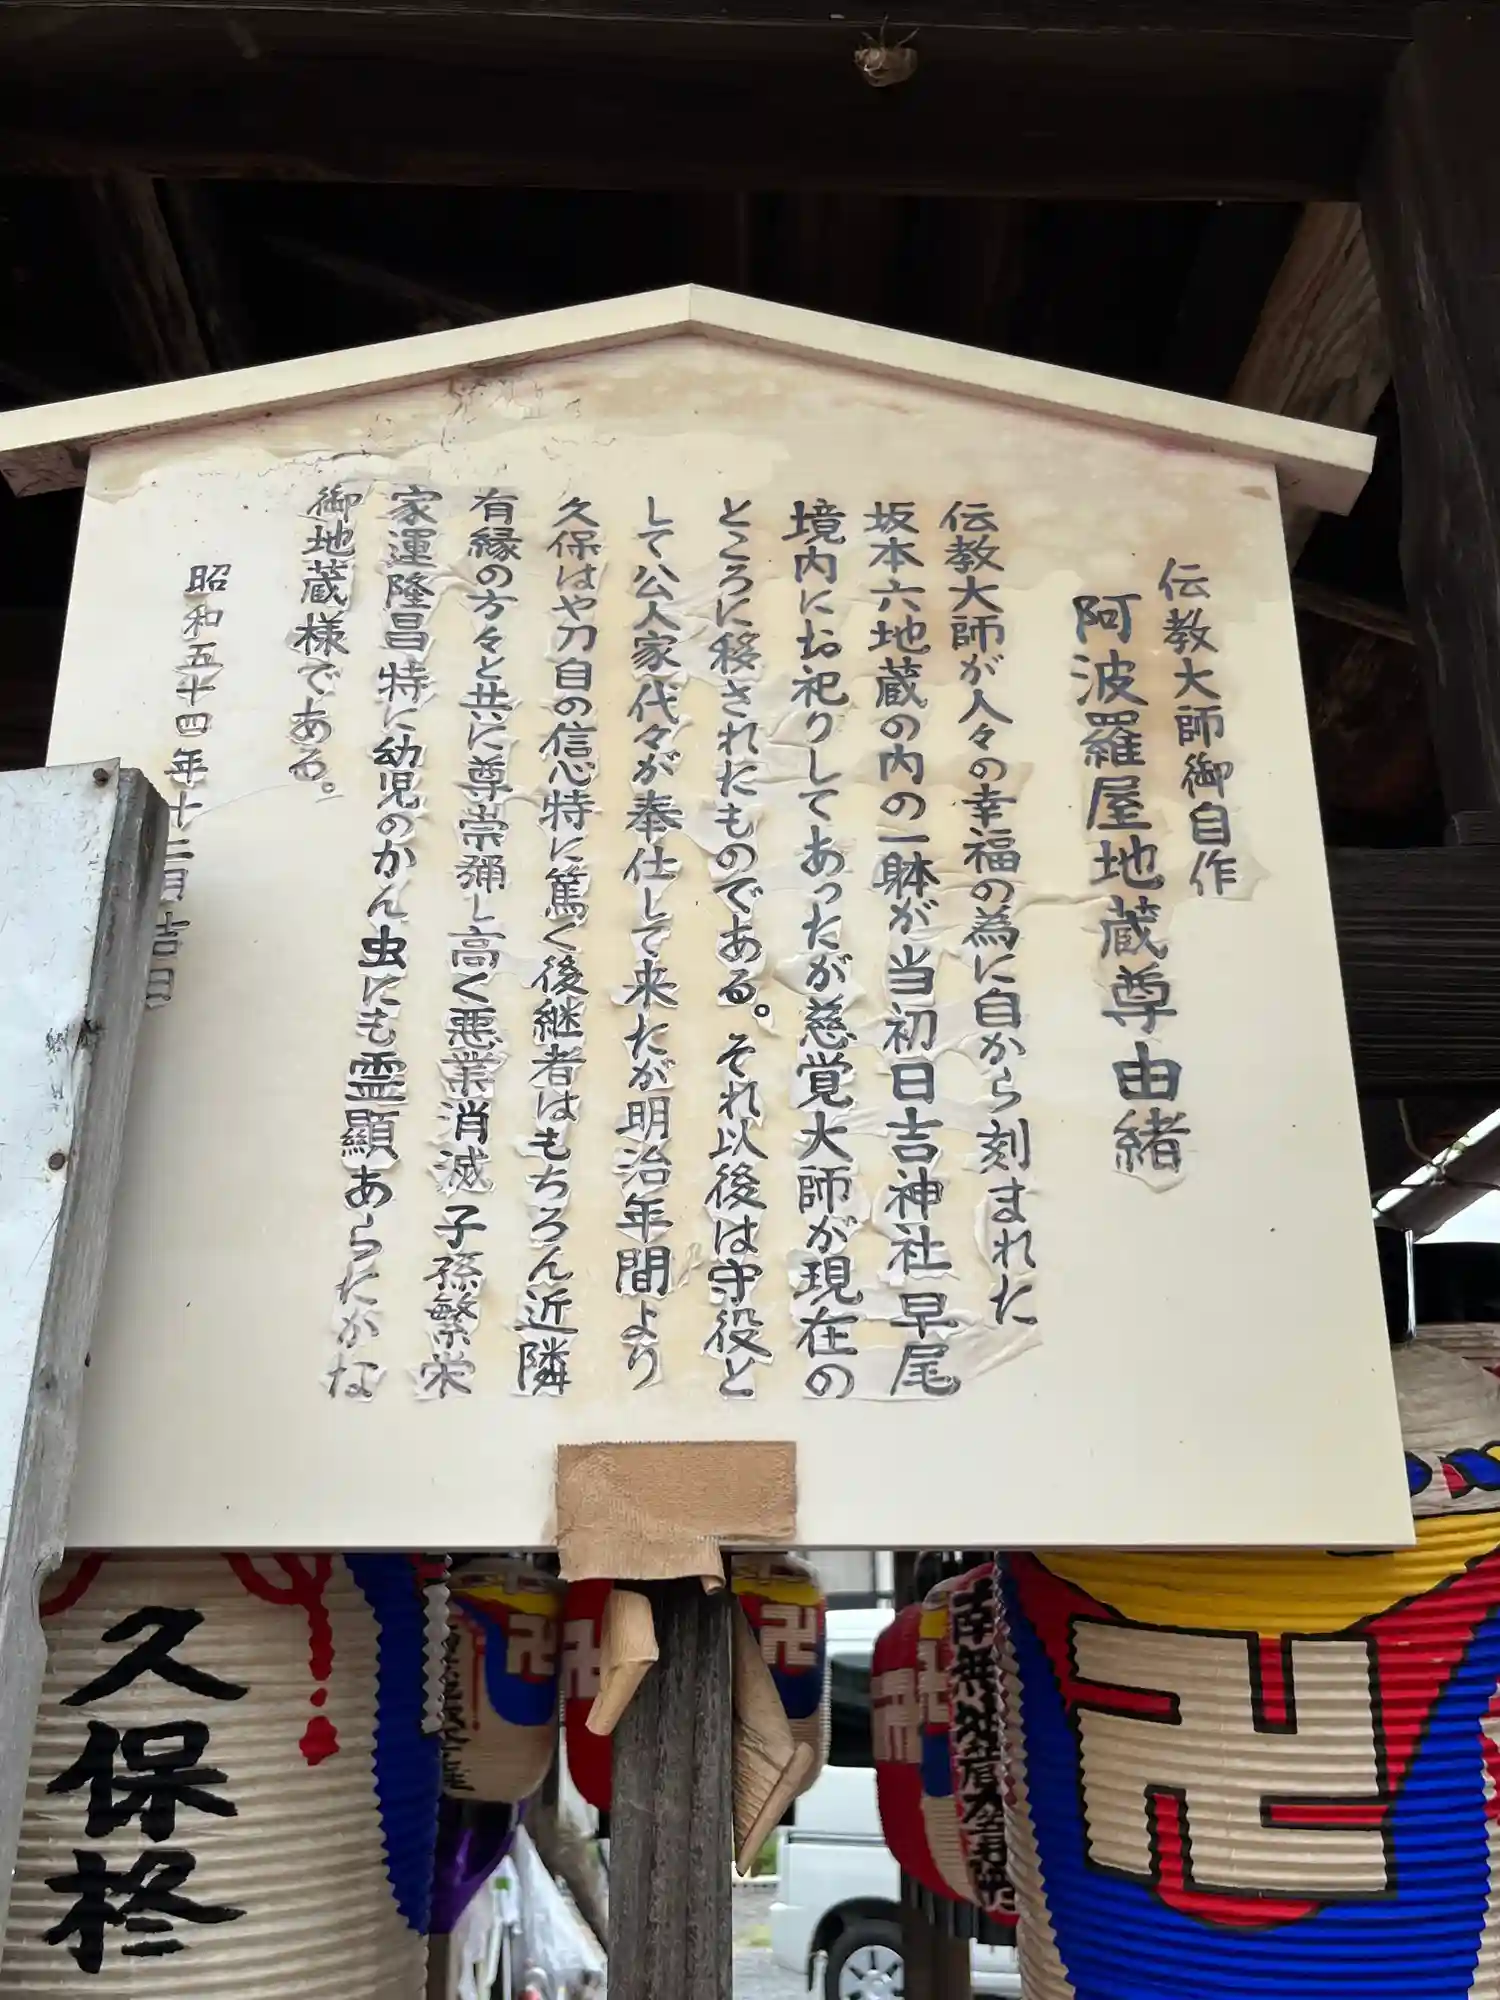 伝教大師御自作
阿波羅屋地蔵尊由緒
伝教大師が人々の幸福の為に自から刻まれた
坂本六地蔵の内の一躰が当初日吉神社早尾
境内にお祀りしてあったが慈覚大師が現在の
ところに移されたものである。それ以後は守役と
して公人家代々が奉仕して来たが明治年間より
久保はや刀自の信心特に篤く後継者はもちろん近隣
有縁の方々と共に尊崇弥し高く悪業消滅子孫繁栄
家運隆昌特に幼児のかん虫にも霊顕あらたかな
御地蔵様である。
昭和五十四年十二月吉日
久保柊
卍
卍
卍
南無地蔵大菩薩
卍